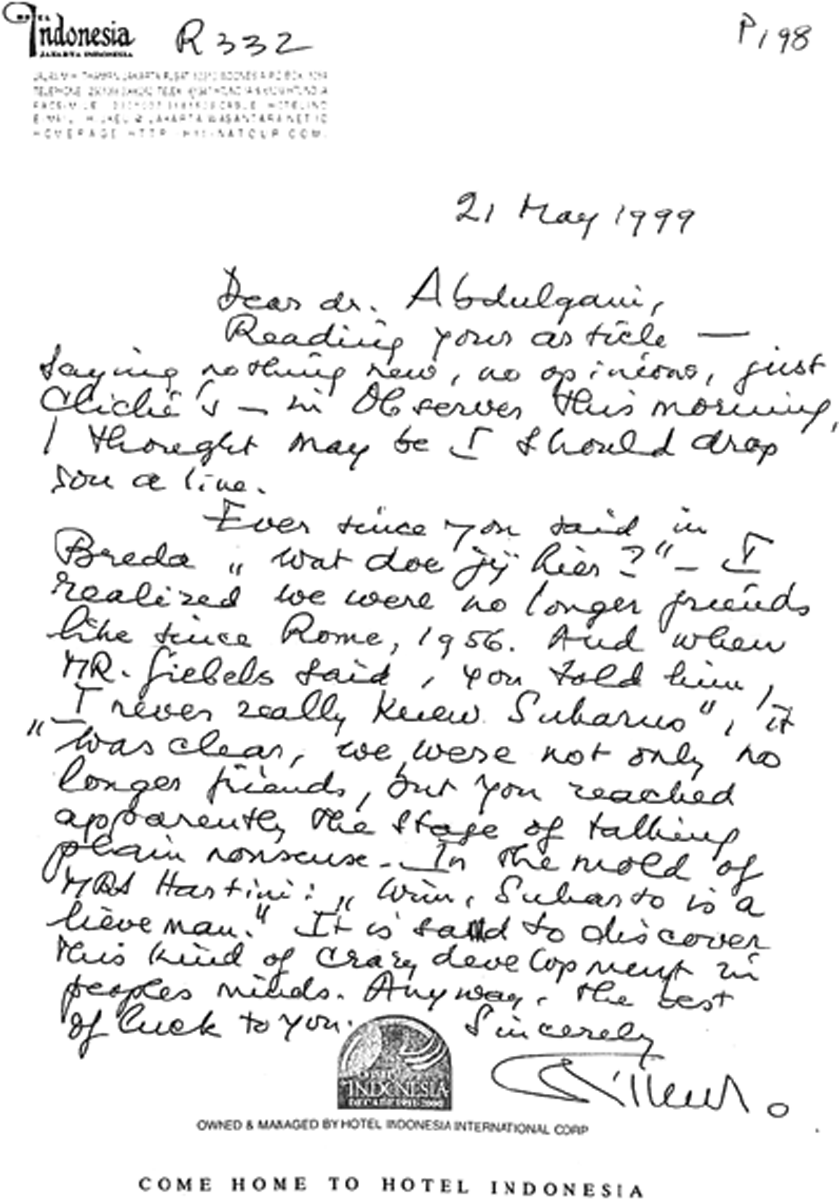 HOTEL
Indonesia
JAKARTA INDONESIA
R332
P198
HOMEPAGE HTTP:
21 May 1999
Dear dr. Abdulgani,
Reading your article —
saying nothing new, no opinions, just
Cliché's — in Observer this morning,
I thought may be I should drop
you a line.
Ever since you said in
Breda „Wat doe jij hier?" — I
realized we were no longer friends
like since Rome, 1956. And when
MR. Giebels said, you told him,
„I never really knew Sukarno", it
was clear, we were not only no
longer friends, but you reached
apparently the stage of talking
plain nonsense. In the mold of
MRS Hartini: „Wim, Suharto is a
lieve man." It is sad to discover
this kind of crazy development in
peoples minds. Anyway, the best
of luck to you. Sincerely
INDONESIA
OWNED & MANAGED BY HOTEL INDONESIA INTERNATIONAL CORP
COME HOME TO HOTEL INDONESIA